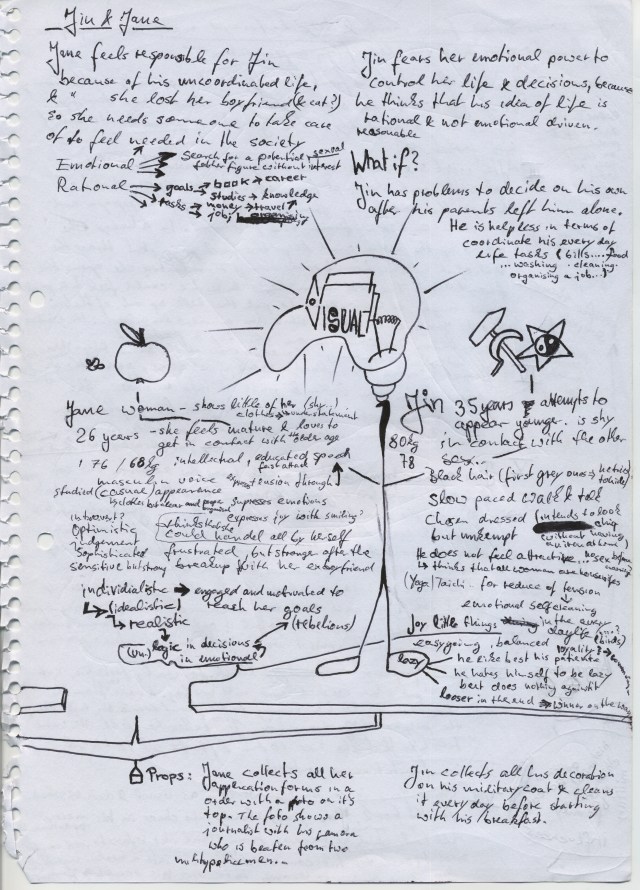 Jin & Jane
Jane feels responsible for Jin
because of his uncoordinated life,
& " she lost her boyfriend (& cat?)
so she needs someone to take care
of to feel needed in the society
Emotional
Search for a potential sexual
father figure without interest
Rational
goals → book → career
studies → knowledge
tasks → money → travel
job,
Jin fears her emotional power to
control her life & decisions, because
he thinks that his idea of life is
rational & not emotional driven.
reasonable
What if?
Jin has problems to decide on his own
after his parents left him alone.
He is helpless in terms of
coordinate his every day
life tasks (bills....food
... washing . cleaning.
organising a job...)
VISUAL
Jane woman - shows little of her (shy..)
clothes understatement
26 years - she feels mature & loves to
get in contact with older age
176 / 68kg intellectual, educated speech
fast attack
masculin voice tension through
studied (casual) appearance
supresses emotions
express joy with smiling?
introvert?
Optimistic
thinks that she
could handel all by herself
Judgement
Sophisticated frustrated, but stronger after the
sensitive but strong breakup with her exboyfriend
individialistic → engaged and motivated to
reach her goals
(idealistic)
(rebelious)
realistic
(un.) logic in decisions
in emotional
80kg
78
Jin 35 years attempts to
appear younger.. is shy
in contact with the other
sex...
Black hair (first grey ones → he tries
to hide)
Slow paced walk & talk
Chosen dressed intends to look
but unkempt without having
He does not feel attractive...
thinks that all woman are housewifes
(Yoga/Taichi.. for reduce of tension
emotional selfcleaning
Joy little things in the every
day life
easygoing, balanced loyality?
lazy
he like best his patience
he hates himself to be lazy
but does nothing against it
looser in the end → winner on the
Props:
Jane collects all her
application forms in a
order with a foto on it's
top. The foto shows a
journalist with his camera
who is beaten from two
policemen...
Jin collects all his decoration
on his military coat & cleans
it every day before starting
with his breakfast.